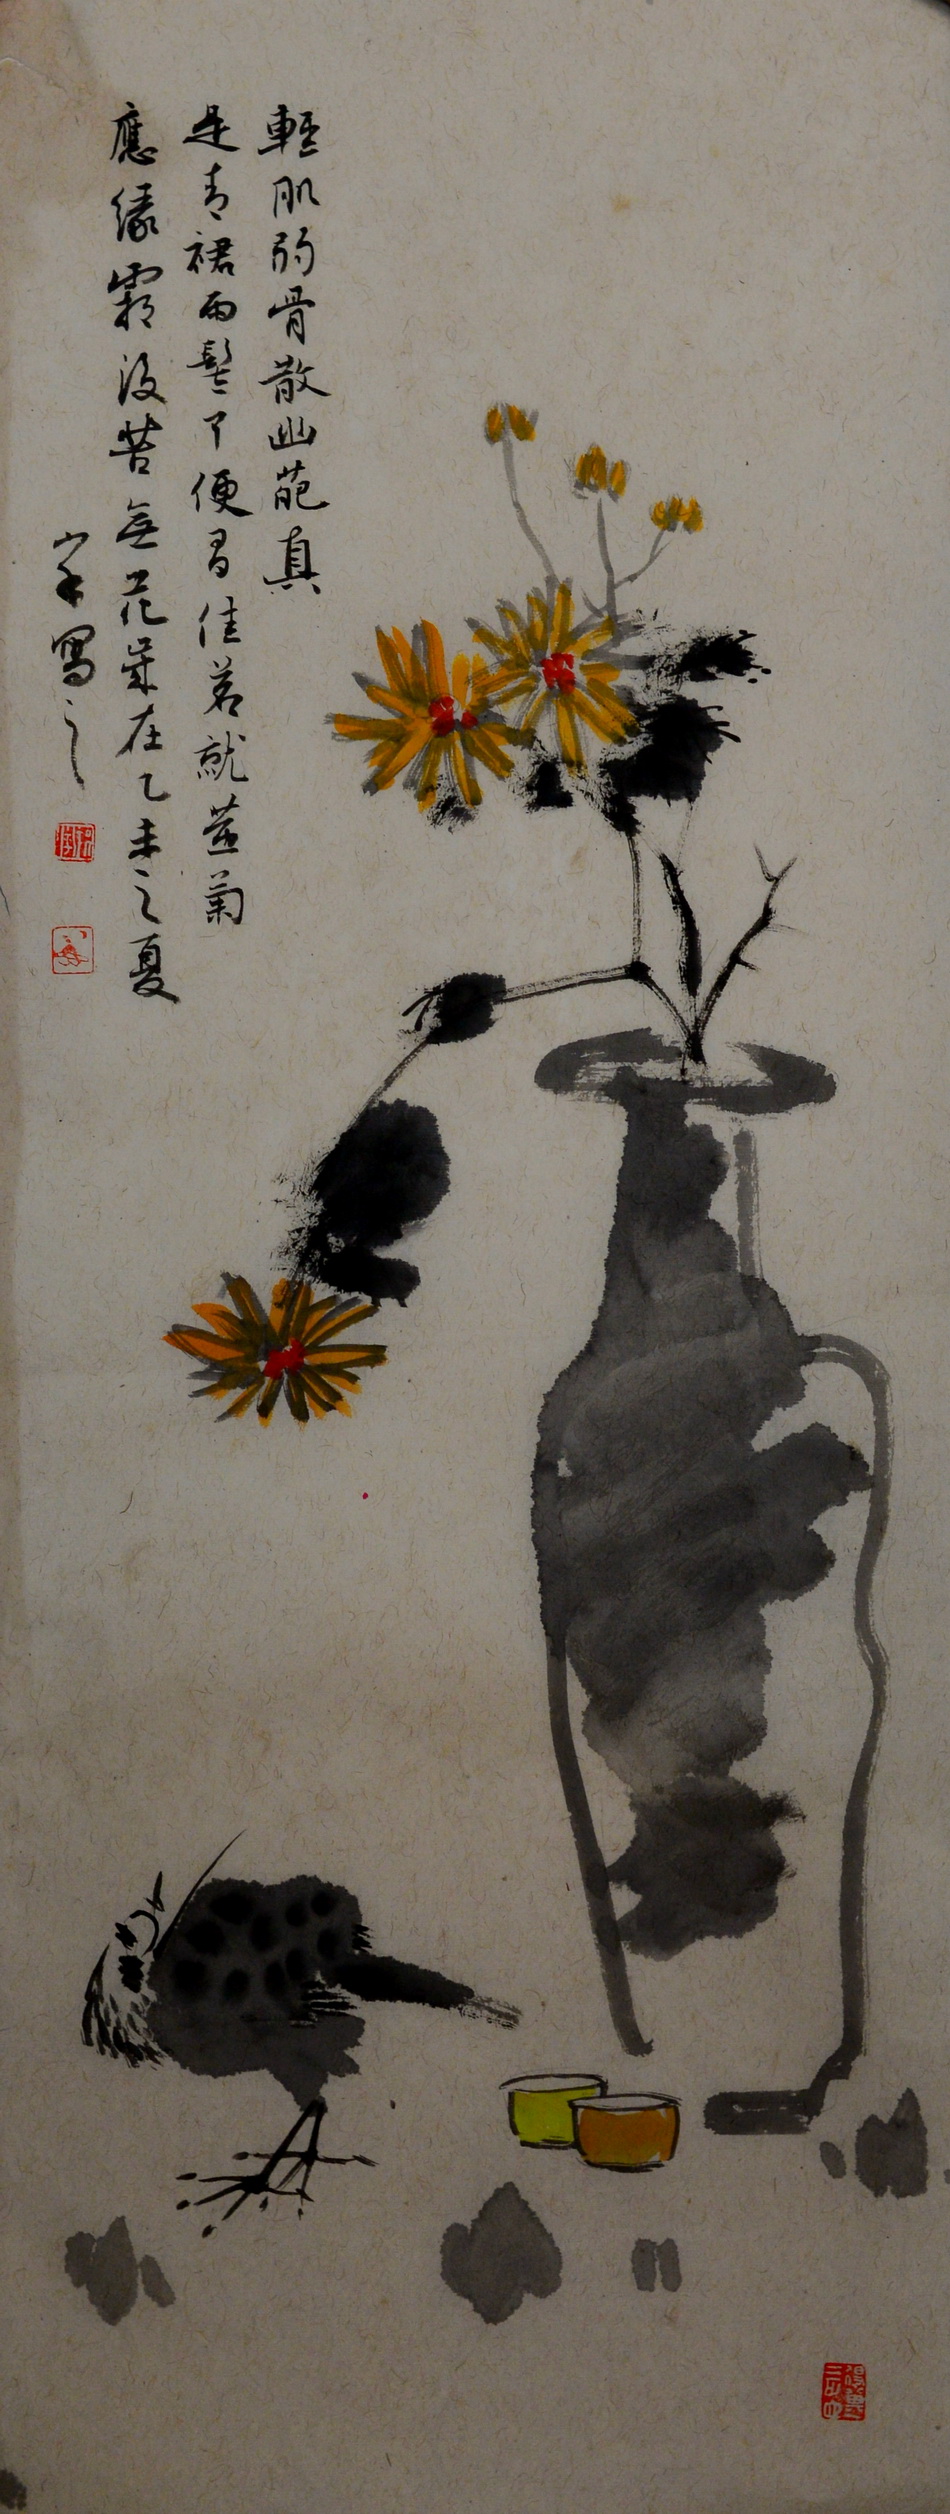 輕肌弱骨散幽葩真
是青裙兩髻丫便有佳茗就黃菊
應緣霜後苦無花歲在乙未之夏
寫之